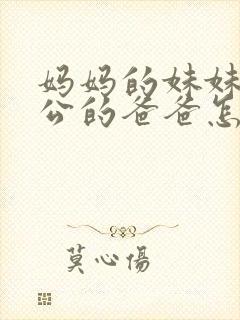 妈妈的妹妹
公的爸爸怎
莫心傷